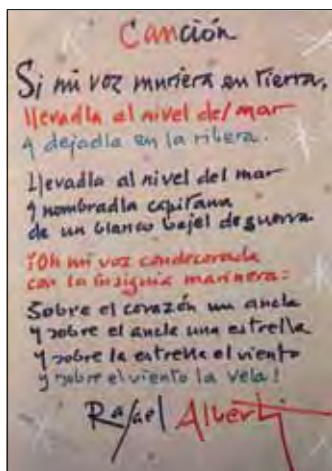 Canción
Si mi voz muriera en tierra,
llevadla al nivel del mar
y dejadla en la ribera.
Llevadla al nivel del mar
y nombradla capitana
de un blanco bajel de guerra.
¡Oh mi voz condecorada
con la insignia marinera:
Sobre el corazón un ancla
y sobre el ancla una estrella
y sobre la estrella el viento
y sobre el viento la vela!
Rafael Alberti